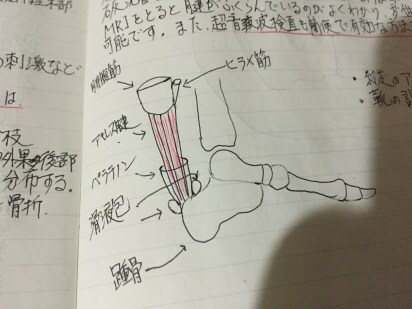 MRIをとると腱がふくらんでいるのがよくわかり
可能です。また、超音波検査も簡便で有効な方法
の刺激など
は
枝
外果後部
分布する。
骨折.
腓腹筋
ヒラメ筋
アキレス腱
パラテノン
滑液包
踵骨